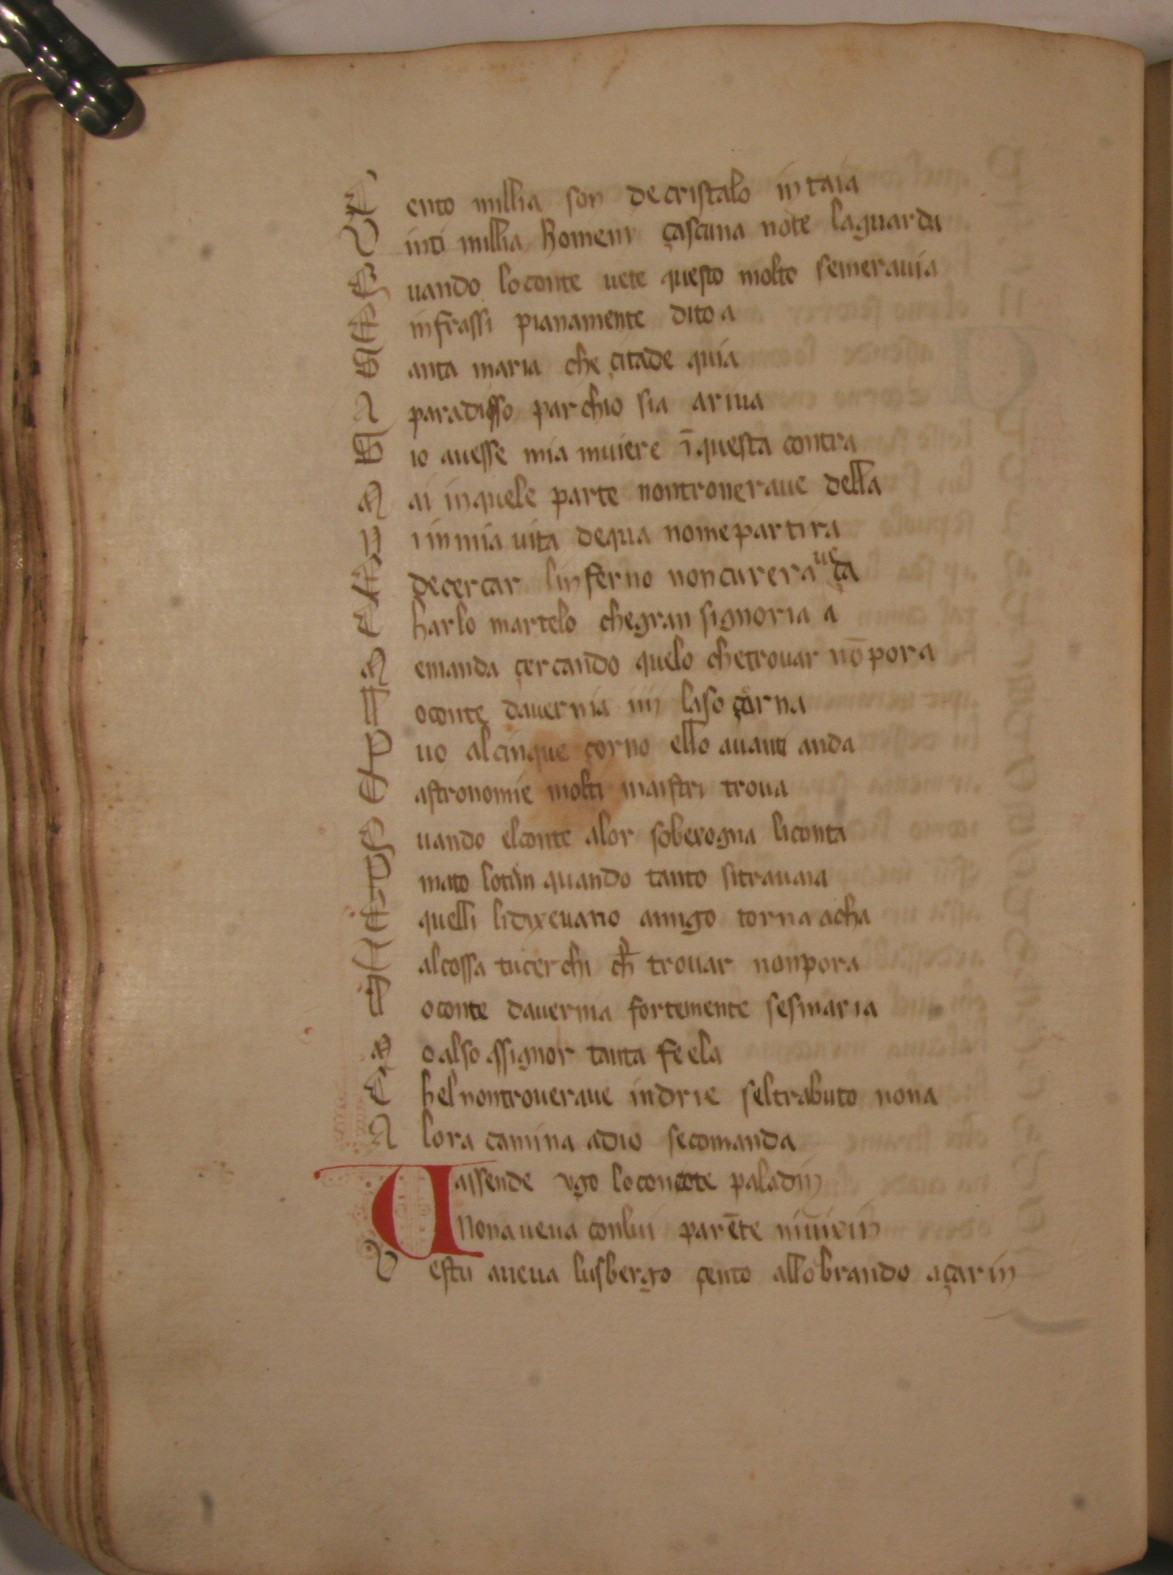 C ento millia son de cristalo in taia
V inti millia homeni çascuna note laguarda
Q uando lo conte vete questo molto semeravia
E infrassi pianamente dito a
S anta maria che çitade quia
A paradisso par chio sia ariua
S io auesse mia muiere ī questa contra
M ai in quele parte nontroueraue della
N i in mia uita dequa nomepartira
E decercar linferno noncureraue ça
C harlo martelo chegran signoria a
M emanda çercando quelo chetrouar nō pora
L oconte davernia iiii laso çorna
P uo alcinque çorno ello auanti anda
D astronomie molti maistri troua
Q uando elconte alor soberogna liconta
P mato lotiin quando tanto sitrauaia
E quelli lidixeuano amigo torna acha
T alcossa tucerchi ch̄ trouar nonpora
L oconte davernia fortemente sesmaria
M o also assignor tanta fe ela
C helnontroueraue indrie seltrabuto nona
A lora camina adio secomanda
V aissende vgo lo concote paladin
Nonaueua conlui parēte
V estu aueua lusbergo çento allobrando açarin